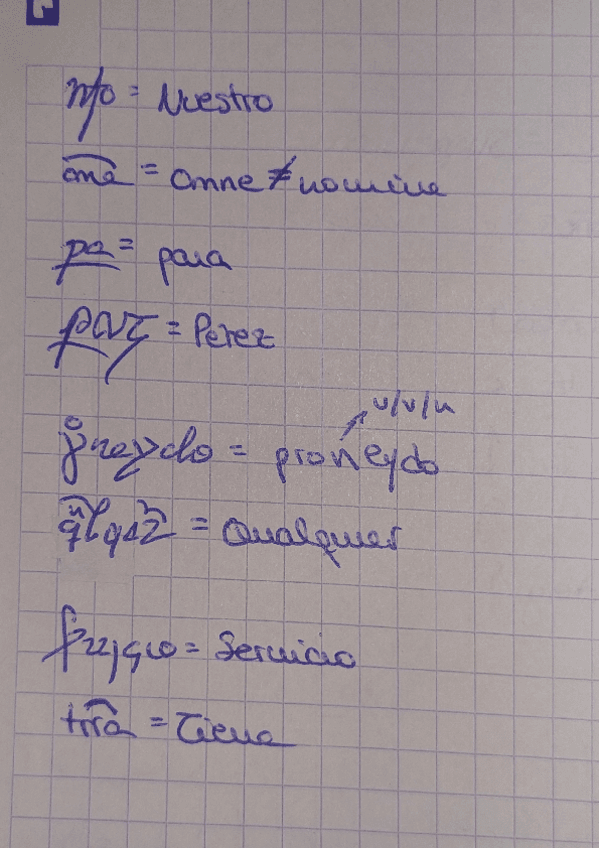 nro = Nuestro
ome = omne ≠ nomine
pa = para
prz = Perez
u/v/n
proneydo = proneydo
qlqer = Qualquer
= Servicio
trra = Tierra